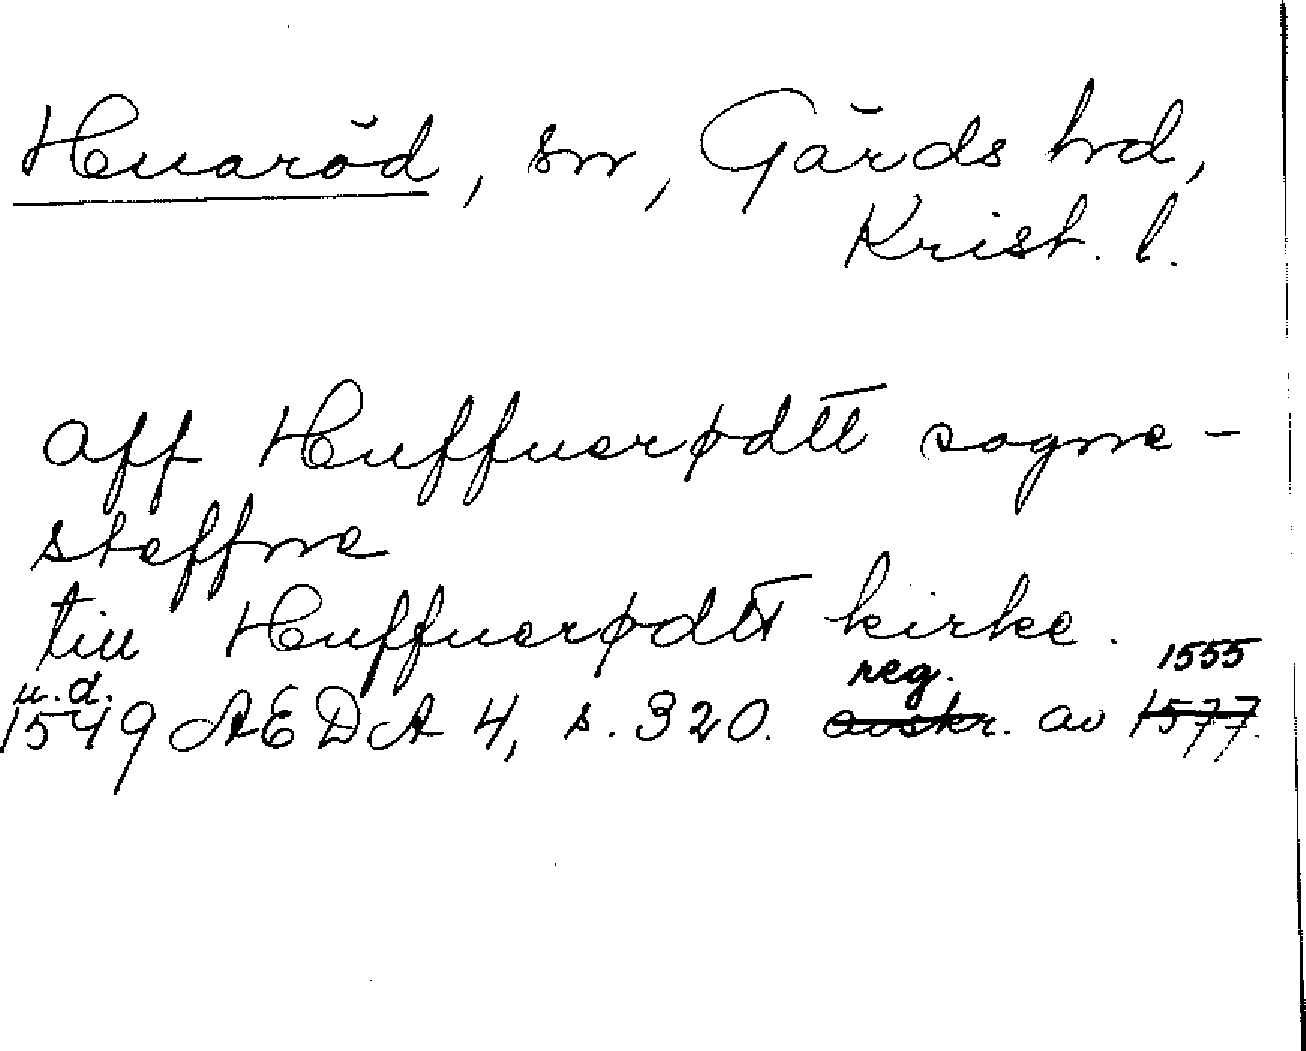 Huaröd, sn, Gärds hd,
Krist. l.
aff Huffuerødtt sogne-
steffne
till Huffuerødtt kirke.
u.d. reg. 1555
1549 AEDA 4, s. 320. avskr. av 1577.